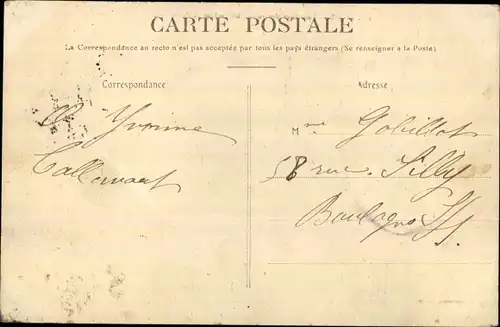 CARTE POSTALE
La Correspondance au recto n'est pas acceptée par tous les pays étrangers (Se renseigner à la Poste)
Correspondance
Adresse
Yvonne
Mme Gobillot
58 rue Silly
Boulogne